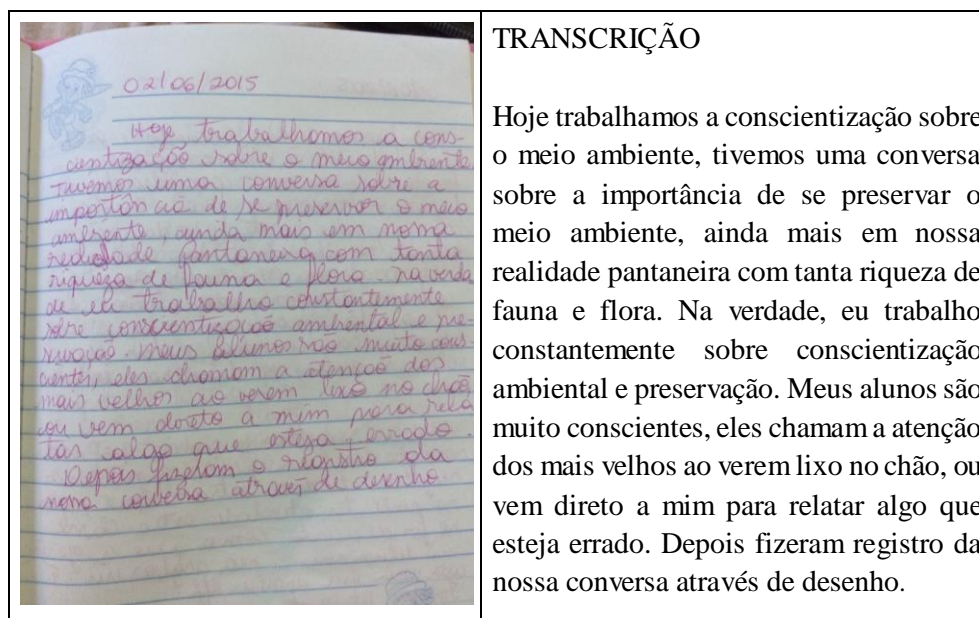 02/06/2015
Hoje trabalhamos a cons-
cientização sobre o meio ambiente
tivemos uma conversa sobre a
importância de se preservar o meio
ambiente, ainda mais em nossa
realidade pantaneira com tanta
riqueza de fauna e flora. Na verda
de eu trabalho constantemente
sobre conscientização ambiental e pre-
servação. Meus alunos são muito cons-
cientes, eles chamam a atenção dos
mais velhos ao verem lixo no chão
ou vem direto a mim para rela
tar algo que esteja errado.
Depois fizeram o registro da
nossa conversa através de desenho
TRANSCRIÇÃO
Hoje trabalhamos a conscientização sobre
o meio ambiente, tivemos uma conversa
sobre a importância de se preservar o
meio ambiente, ainda mais em nossa
realidade pantaneira com tanta riqueza de
fauna e flora. Na verdade, eu trabalho
constantemente sobre conscientização
ambiental e preservação. Meus alunos são
muito conscientes, eles chamam a atenção
dos mais velhos ao verem lixo no chão, ou
vem direto a mim para relatar algo que
esteja errado. Depois fizeram registro da
nossa conversa através de desenho.